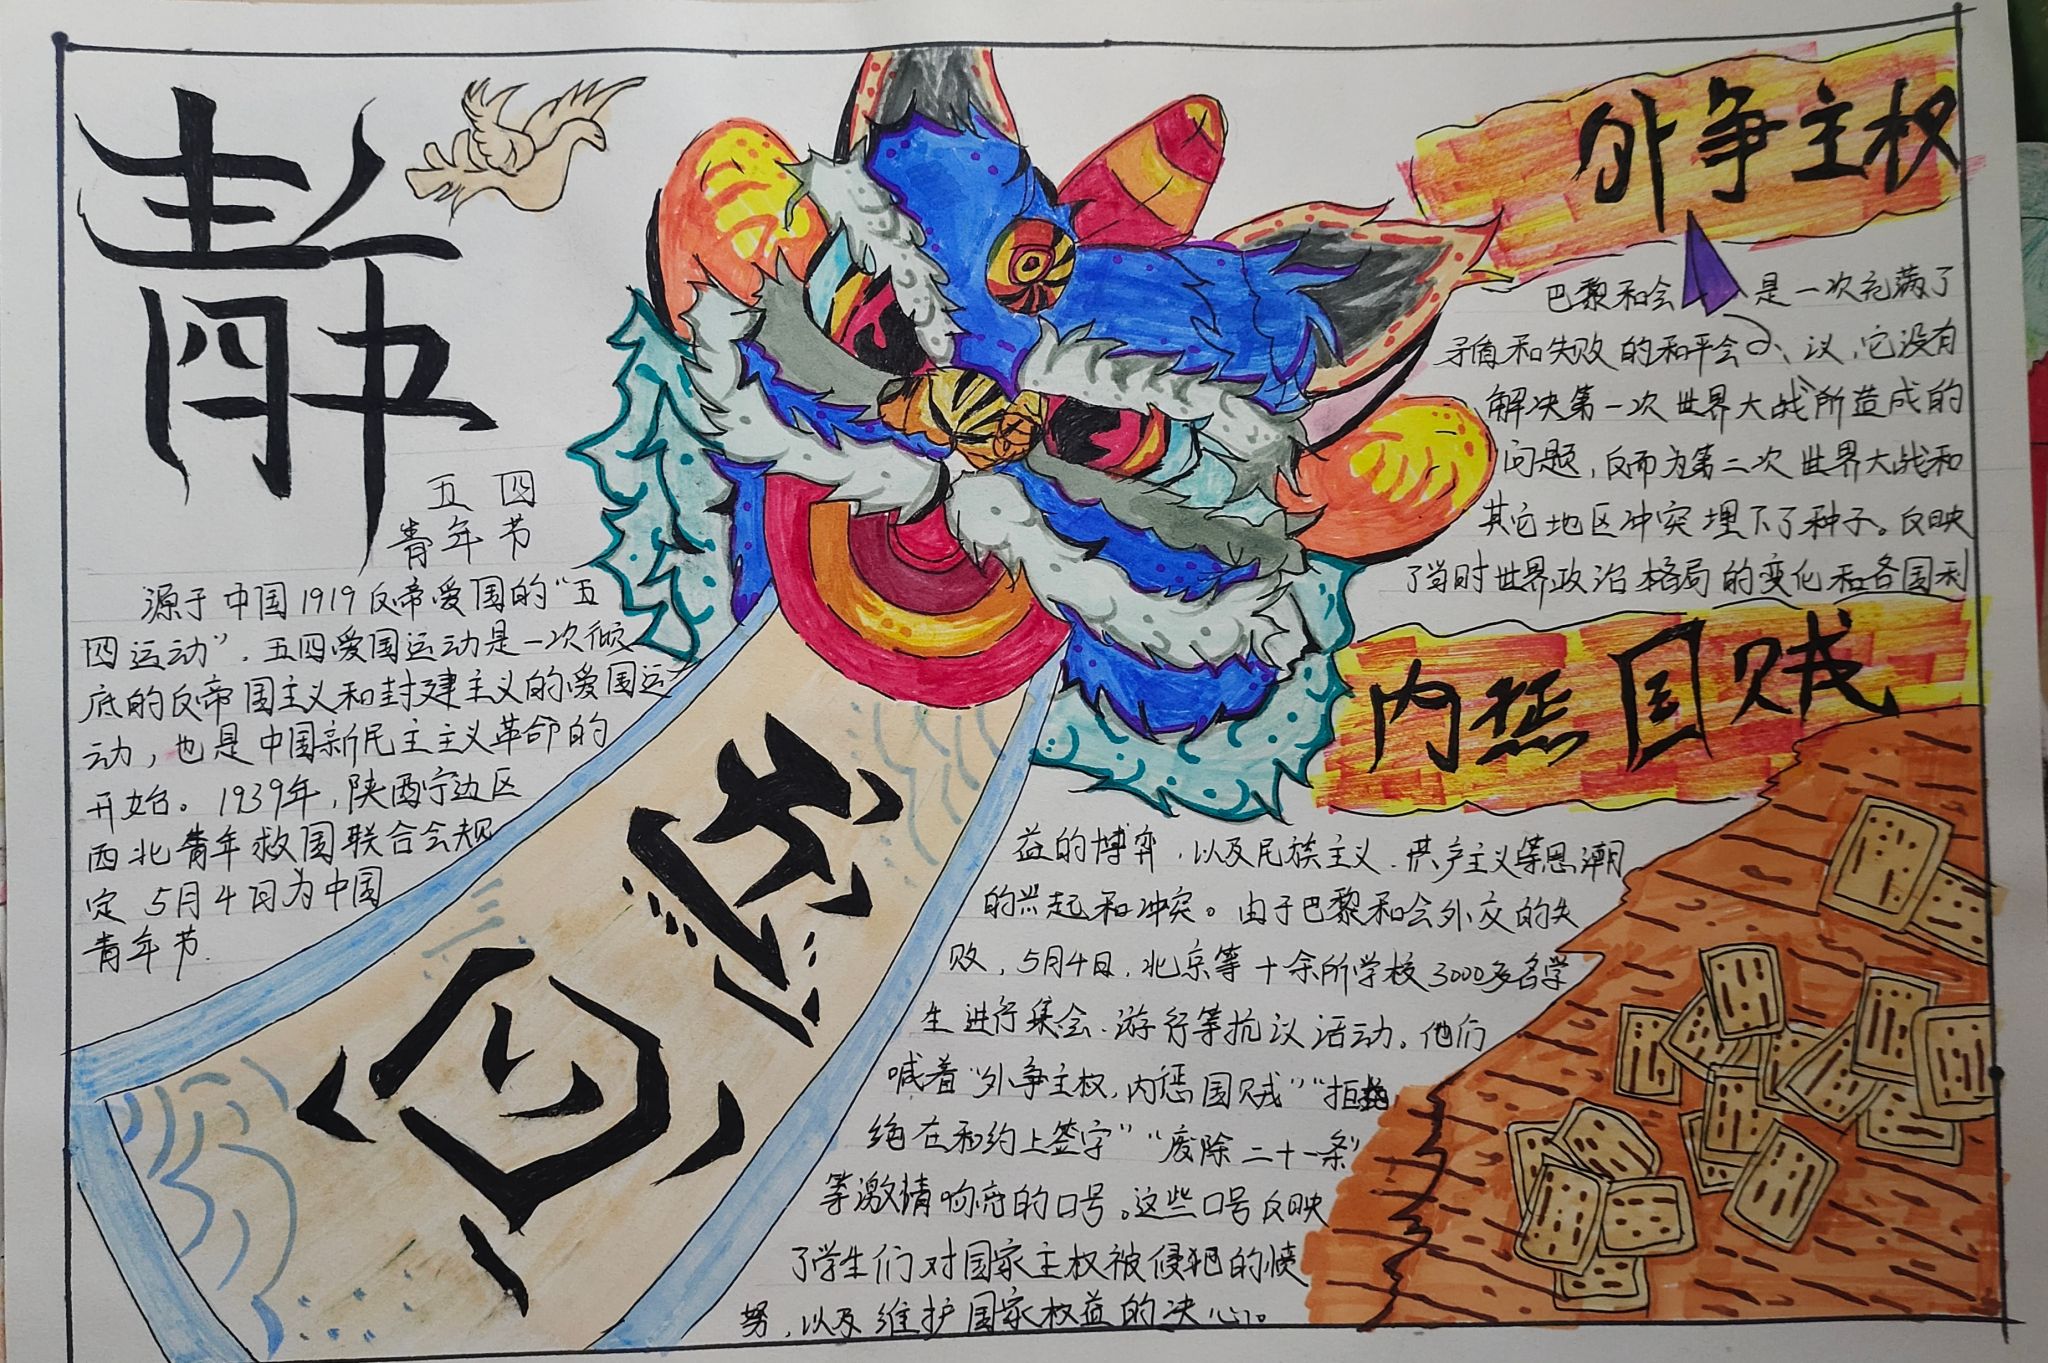 青年
五四
青年节
源于中国1919反帝爱国的“五
四运动”，五四爱国运动是一次彻
底的反帝国主义和封建主义的爱国运
动，也是中国新民主主义革命的
开始。1939年，陕西宁边区
西北青年救国联合会规
定5月4日为中国
青年节.
外争主权
巴黎和会是一次充满了
矛盾和失败的和平会议，它没有
解决第一次世界大战所造成的
问题，反而为第二次世界大战和
其它地区冲突埋下了种子。反映
了当时世界政治格局的变化和各国利
内惩国贼
益的博弈，以及民族主义、共产主义等思潮
的兴起和冲突。由于巴黎和会外交的失
败，5月4日，北京等十余所学校3000多名学
生进行集会、游行等抗议活动。他们
喊着“外争主权，内惩国贼”“拒
绝在和约上签字”“废除二十一条”
等激情响应的口号。这些口号反映
了学生们对国家主权被侵犯的愤
努，以及维护国家权益的决心。